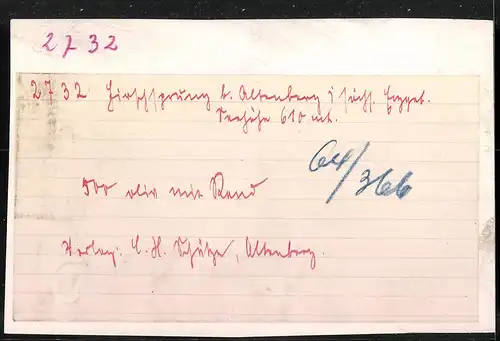 2732
2732 Hirschsprung b. Altenberg i sächs. Erzgeb.
Seehöhe 610 mt.
64/366
500 oliv mit Rand
Verlag: C. H. Schütze, Altenberg.